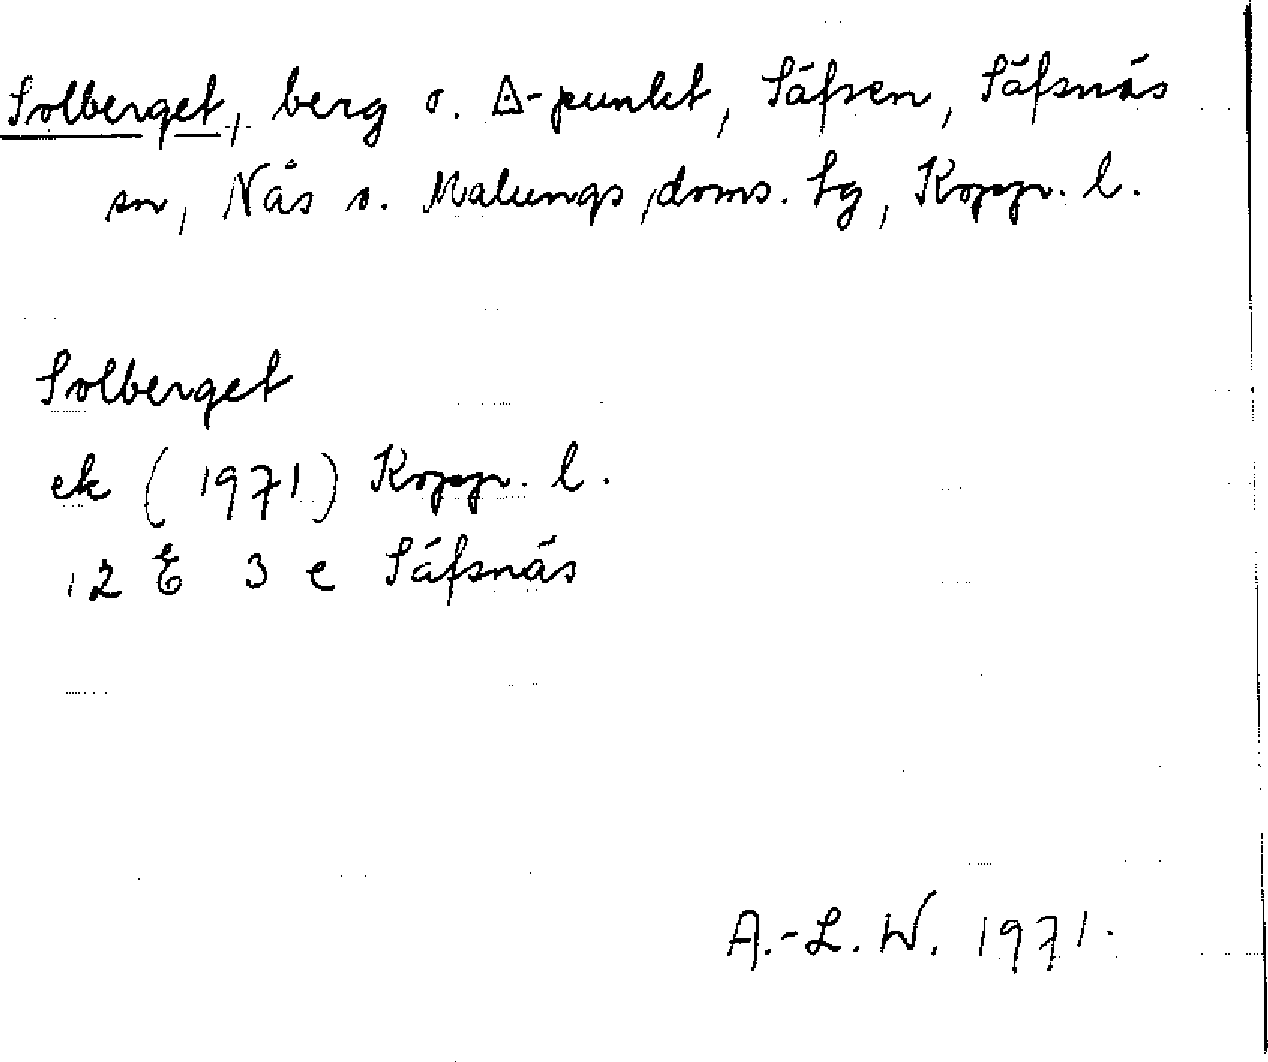 Solberget, berg o. Δ-punkt, Säfsen, Säfsnäs
sn, Nås o. Malungs doms. tg, Kopp. l.
Solberget
ek (1971) Kopp. l.
12 E 3 e Säfsnäs
A.-L. W. 1971.